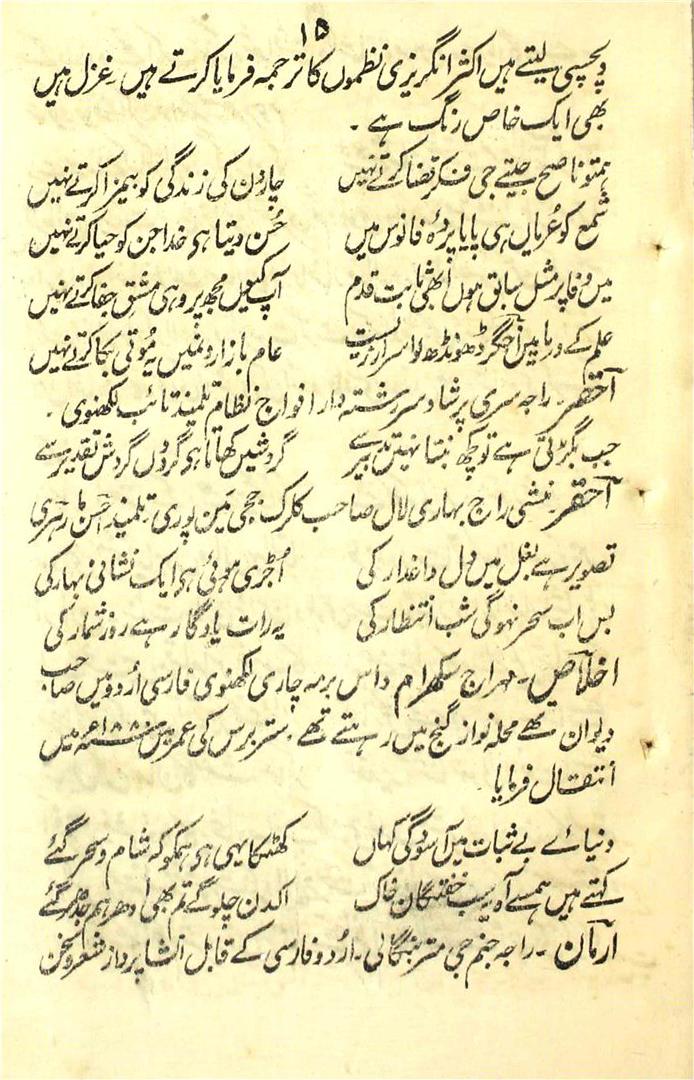 ۱۵
دلچسپی لیتے ہیں اکثر انگریزی نظموں کا ترجمہ فرمایا کرتے ہیں۔ غزل میں
بھی ایک خاص رنگ ہے۔
ہمتو ناصح جیتے جی فکر قضا کرتے نہیں چار دن کی زندگی کو بیمزا کرتے نہیں
شمع کو عریاں ہی پایا پردۂ فانوس میں حُسن دیتا ہی خدا جن کو حیا کرتے نہیں
میں وفا پر مثل سابق ہوں ابھی ثابت قدم آپ کیوں مجھ پر وہی مشق جفا کرتے نہیں
علم کے دریا میں ڈھونڈھ لو اسرار زیست عام بازارونمیں یہ مُوتی بکا کرتے نہیں
احقر۔ راجہ سری پرشاد سررشتہ دار افواج نظام تلمیذ تائب لکھنوی۔
جب بگڑتی ہے تو کچھ بنتا نہیں تدبیر سے گردشیں کھاتا ہو گردوں گردش تقدیر سے
احقر۔ منشی راج بہاری لال صاحب کلرک ججی مین پوری۔ تلمیذ احسن مارہروی
تصویر ہے بغل میں دل داغدار کی اُجڑی ہوئی ہی ایک نشانی بہار کی
بس اب سحر نہوگی شب انتظار کی یہ رات یادگار ہے روز شمار کی
اخلاص۔ مہراج سکھرام داس برمہ چاری لکھنوی فارسی اُردو میں صاحب
دیوان تھے محلہ نواز گنج میں رہتے تھے۔ ستر برس کی عمر میں ۱۸۸۰ء میں
انتقال فرمایا۔
دنیائے بے ثبات میں آسودگی کہاں کھٹکا یہی ہی ہمکو کہ شام و سحر گئے
کہتے ہیں ہمسے آہ یہ سب خفتگان خاک اکدن چلوگے تم بھی اُدھر ہم جدھر گئے
ارمان۔ راجہ جنم جی متر بنگالی۔ اُردو فارسی کے قابل انشا پرداز شعر و سخن